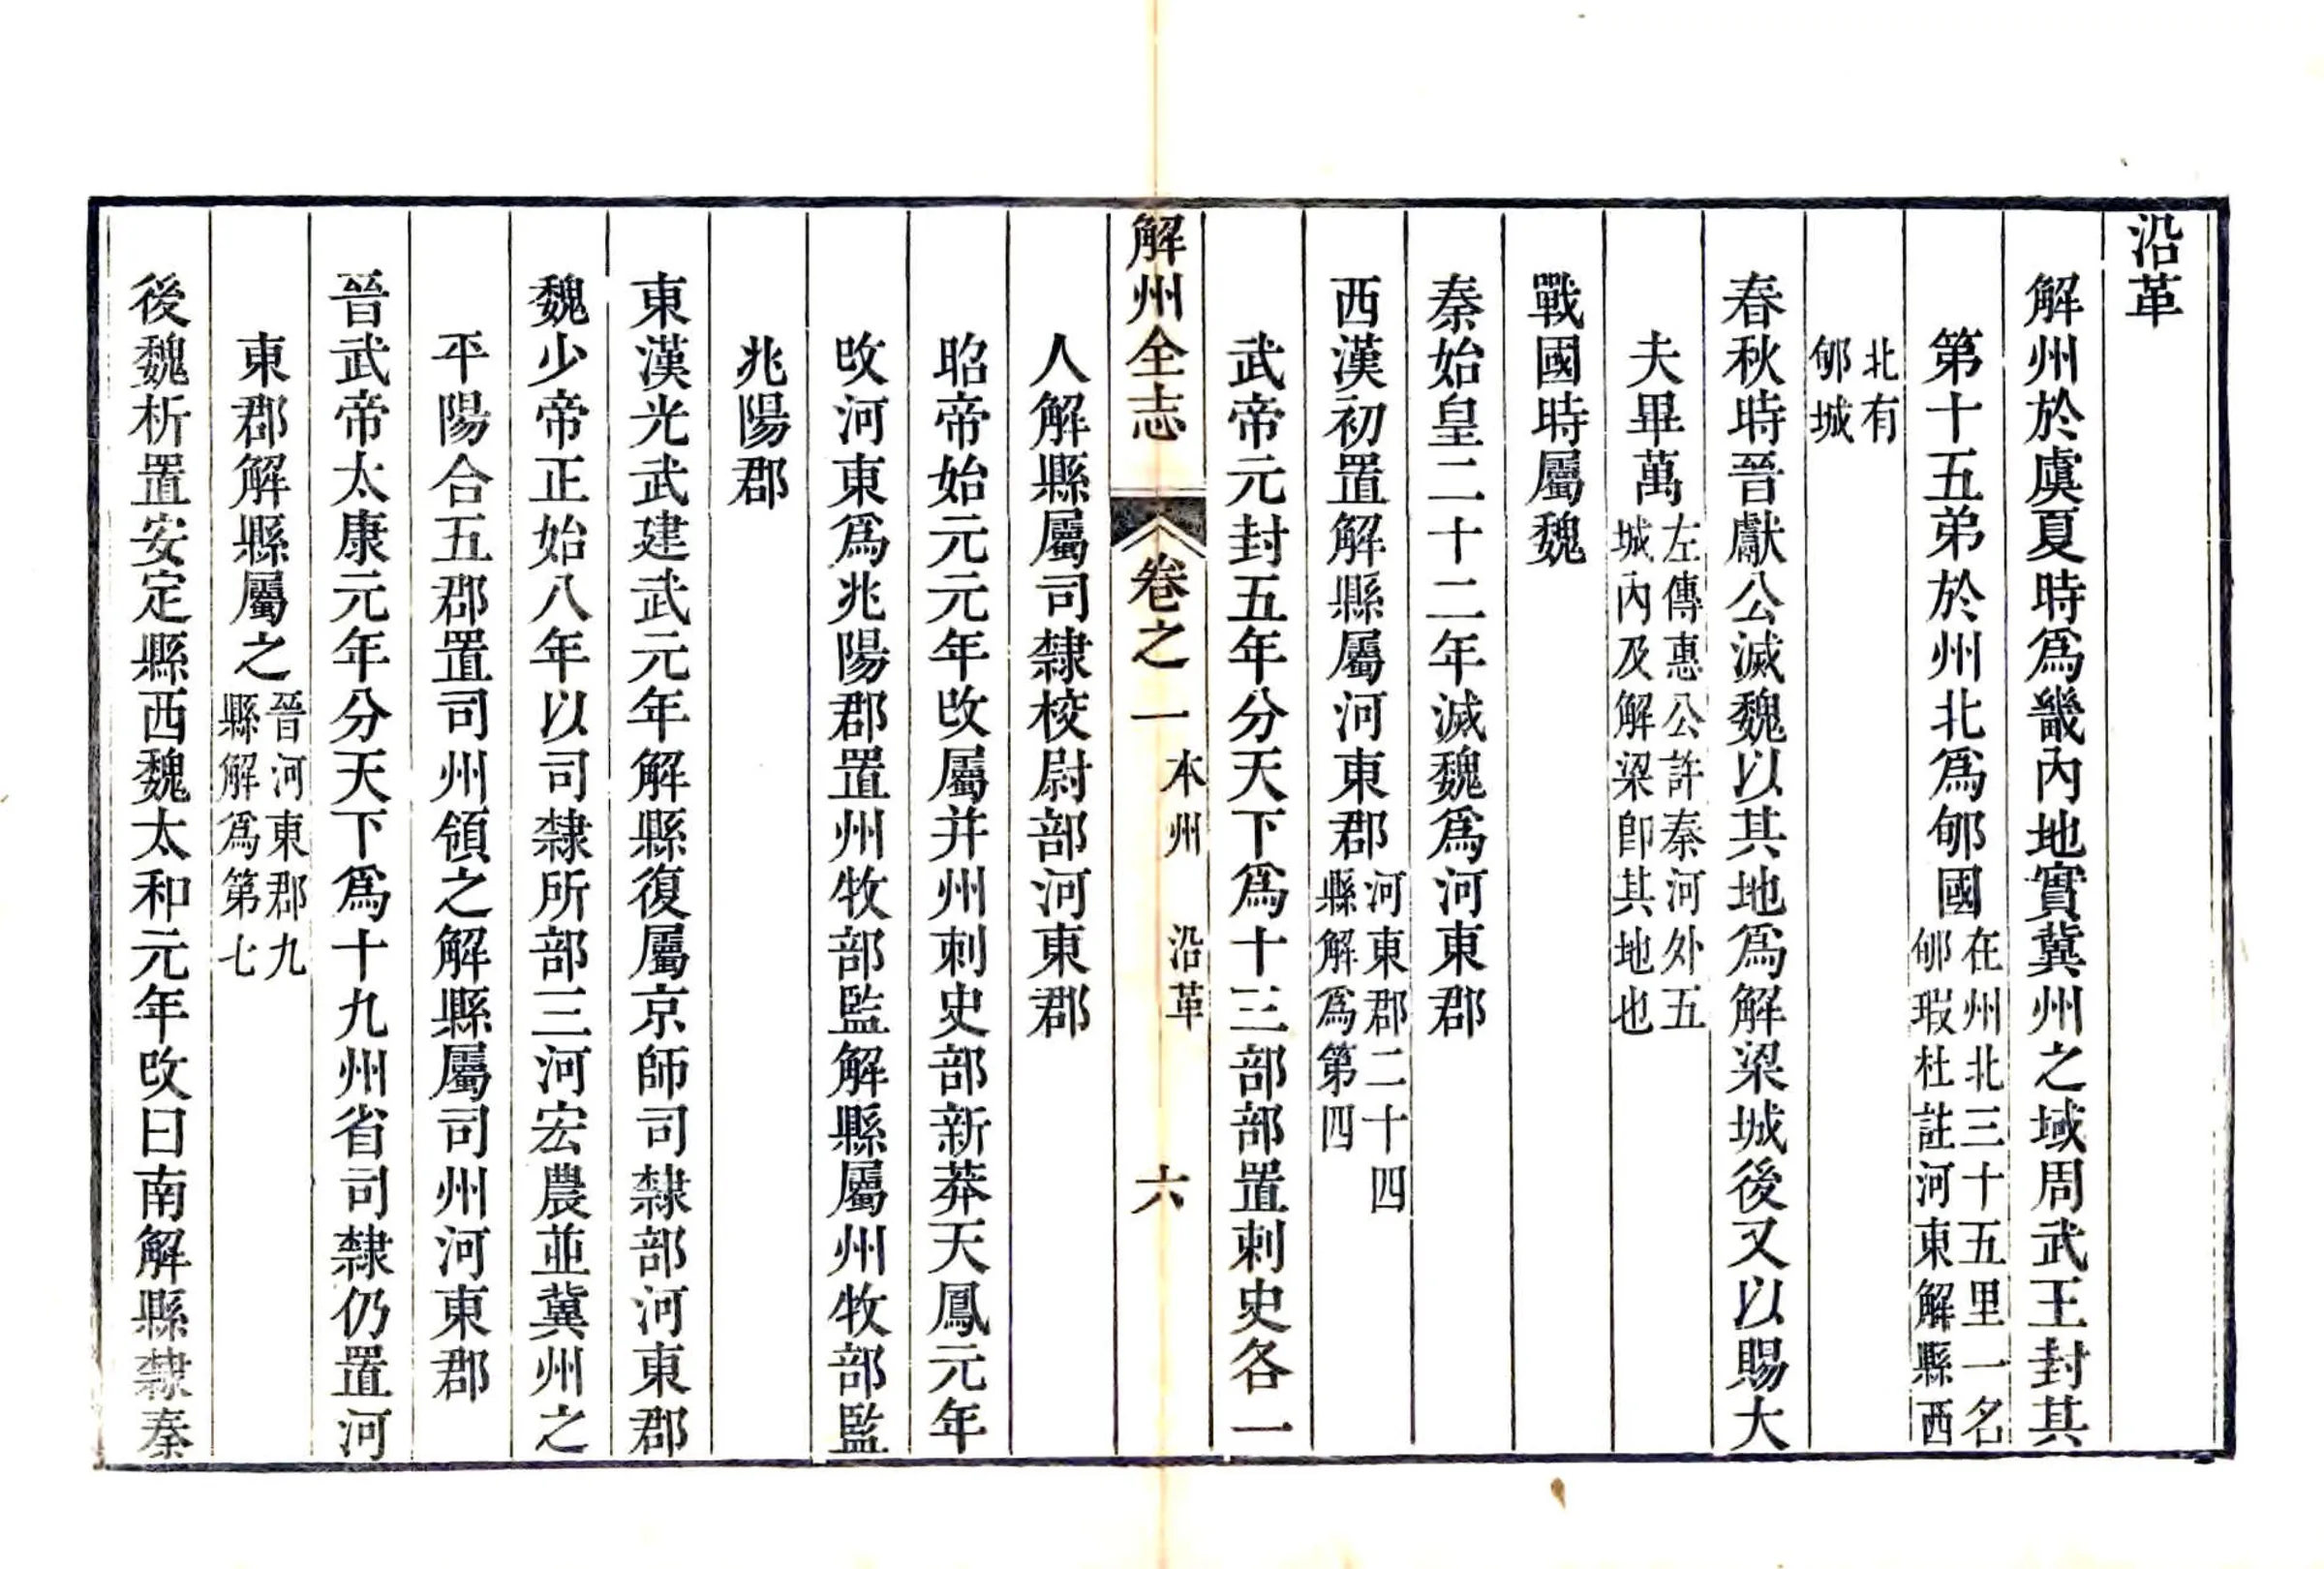 沿革
解州於虞夏時爲畿內地實冀州之域周武王封其
第十五弟於州北爲郇國在州北三十五里一名郇瑕杜註河東解縣西
北有郇城
春秋時晉獻公滅魏以其地爲解梁城後又以賜大
夫畢萬左傳惠公許秦河外五城內及解梁卽其地也
戰國時屬魏
秦始皇二十二年滅魏爲河東郡
西漢初置解縣屬河東郡河東郡二十四縣解爲第四
武帝元封五年分天下爲十三部部置刺史各一
解州全志 卷之一 本州 沿革 六
人解縣屬司隸校尉部河東郡
昭帝始元元年改屬并州刺史部新莽天鳳元年
改河東爲兆陽郡置州牧部監解縣屬州牧部監
兆陽郡
東漢光武建武元年解縣復屬京師司隸部河東郡
魏少帝正始八年以司隸所部三河宏農並冀州之
平陽合五郡置司州領之解縣屬司州河東郡
晉武帝太康元年分天下爲十九州省司隸仍置河
東郡解縣屬之晉河東郡九縣解爲第七
後魏析置安定縣西魏太和元年改曰南解縣隸秦